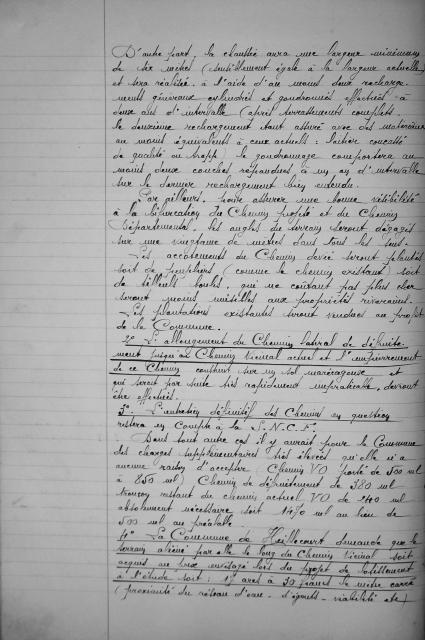 D'autre part, la chaussée aura une largeur minimum
de six mètres (sensiblement égale à la largeur actuelle)
et sera réalisée à l'aide d'au moins deux recharge-
ments généraux cylindrés et goudronnés effectués à
deux ans d'intervalle (après terrassements complets
le deuxième rechargement étant assuré avec des matériaux
au moins équivalents à ceux actuels : laitier concassé
de qualité ou trapp) le goudronnage comportera au
moins deux couches répandues à un an d'intervalle
sur le dernier rechargement bien entendu.
Par ailleurs, pour assurer une bonne visibilité
à la bifurcation du Chemin projeté et du Chemin
Départemental, les angles du terrain seront dégagés
sur une vingtaine de mètres dans tous les sens.
Les accotements du Chemin dévié seront plantés
soit de peupliers (comme le chemin existant) soit
de tilleuls boules, qui ne coûtant pas plus cher
seront moins nuisibles aux propriétés riveraines.
Les plantations existantes seront vendues au profit
de la Commune.
2° L'allongement du Chemin latéral de défruite-
ment jusqu'au Chemin Vicinal actuel et l'empierrement
de ce Chemin construit sur un sol marécageux et
qui serait par suite très rapidement impraticable, devront
être effectués.
3° L'entretien définitif des Chemins en question
restera en Compte à la S.N.C.F.
Dans tout autre cas il y aurait pour la Commune
des charges supplémentaires très élevées qu'elle n'a
aucune raison d'accepter (Chemin VO porté de 500 ml
à 850 ml) Chemin de défruitement de 380 ml
tronçon restant du chemin actuel VO de 240 ml
absolument nécessaire soit 1470 ml au lieu de
500 ml au préalable.
4° La Commune de Heillecourt demande que le
terrain aliéné par elle le long du Chemin Vicinal soit
acquis au prix envisagé lors du projet de lotissement
à l'étude soit : 17 ares à 30 francs le mètre carré
(proximité du réseau d'eau - d'égouts - viabilité etc)